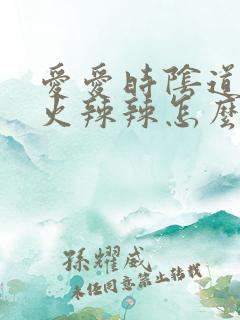 愛愛時陰道
火辣辣怎麼
孫耀威
未经同意禁止转载